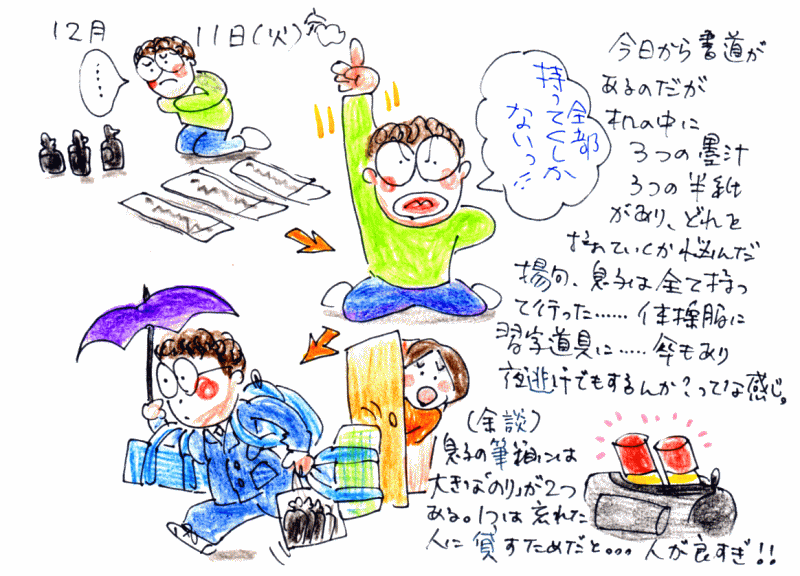 12月 11日(火)
・・・・
全部
持ってくしか
ないっ!!
今日から書道が
あるのだが
机の中に
3つの墨汁
3つの半紙
があり、どれを
持っていくか悩んだ
揚句、息子は全て持っ
て行った……体操服に
習字道具に……傘もあり
夜逃げでもするんか?ってな感じ。
(余談)
息子の筆箱には
大きな「のり」が2つ
ある。1つは忘れた
人に貸すためだと...人が良すぎ!!